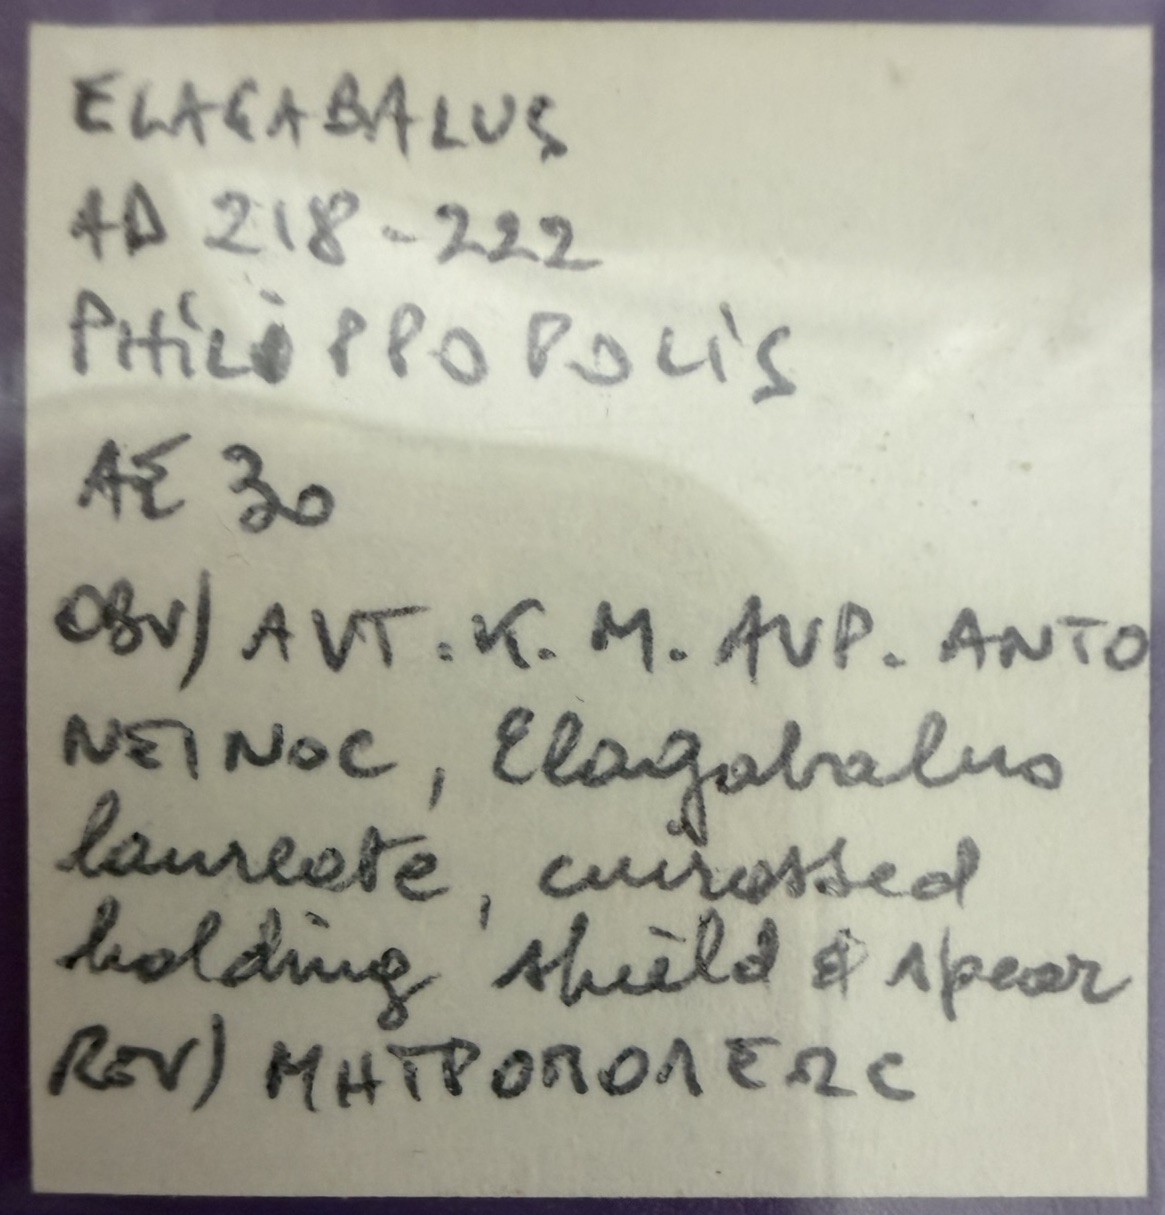 ELAGABALUS
AD 218-222
PHILIPPOPOLIS
AE 30
OBV) AVT. K. M. AVP. ANTO
NEINOC, Elagabalus
laureate, cuirassed
holding shield & spear
REV) ΜΗΤΡΟΠΟΛΕΩC